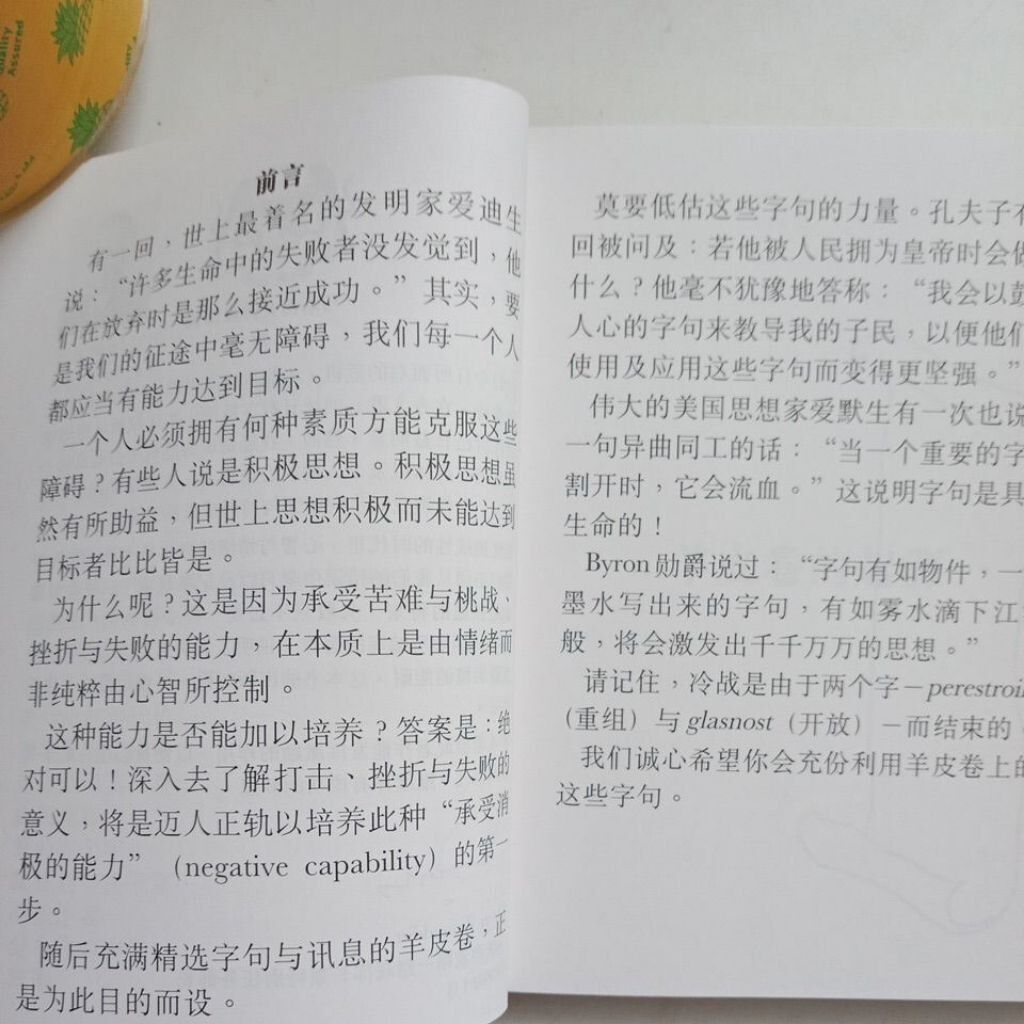 Quality
Assured
前言
有一回，世上最着名的发明家爱迪生
说：“许多生命中的失败者没发觉到，他
们在放弃时是那么接近成功。”其实，要
是我们的征途中毫无障碍，我们每一个人
都应当有能力达到目标。
一个人必须拥有何种素质方能克服这些
障碍？有些人说是积极思想。积极思想虽
然有所助益，但世上思想积极而未能达到
目标者比比皆是。
为什么呢？这是因为承受苦难与桃战、
挫折与失败的能力，在本质上是由情绪而
非纯粹由心智所控制。
这种能力是否能加以培养？答案是：绝
对可以！深入去了解打击、挫折与失败的
意义，将是迈人正轨以培养此种“承受消
极的能力”（negative capability）的第一
步。
随后充满精选字句与讯息的羊皮卷，正
是为此目的而设。
莫要低估这些字句的力量。孔夫子有
回被问及：若他被人民拥为皇帝时会做
什么？他毫不犹豫地答称：“我会以鼓
人心的字句来教导我的子民，以便他们
使用及应用这些字句而变得更坚强。”
伟大的美国思想家爱默生有一次也说
一句异曲同工的话：“当一个重要的字
割开时，它会流血。”这说明字句是具
生命的！
Byron 勋爵说过：“字句有如物件，一
墨水写出来的字句，有如雾水滴下江
般，将会激发出千千万万的思想。”
请记住，冷战是由于两个字－perestroi
（重组）与 glasnost（开放）－而结束的
我们诚心希望你会充份利用羊皮卷上的
这些字句。